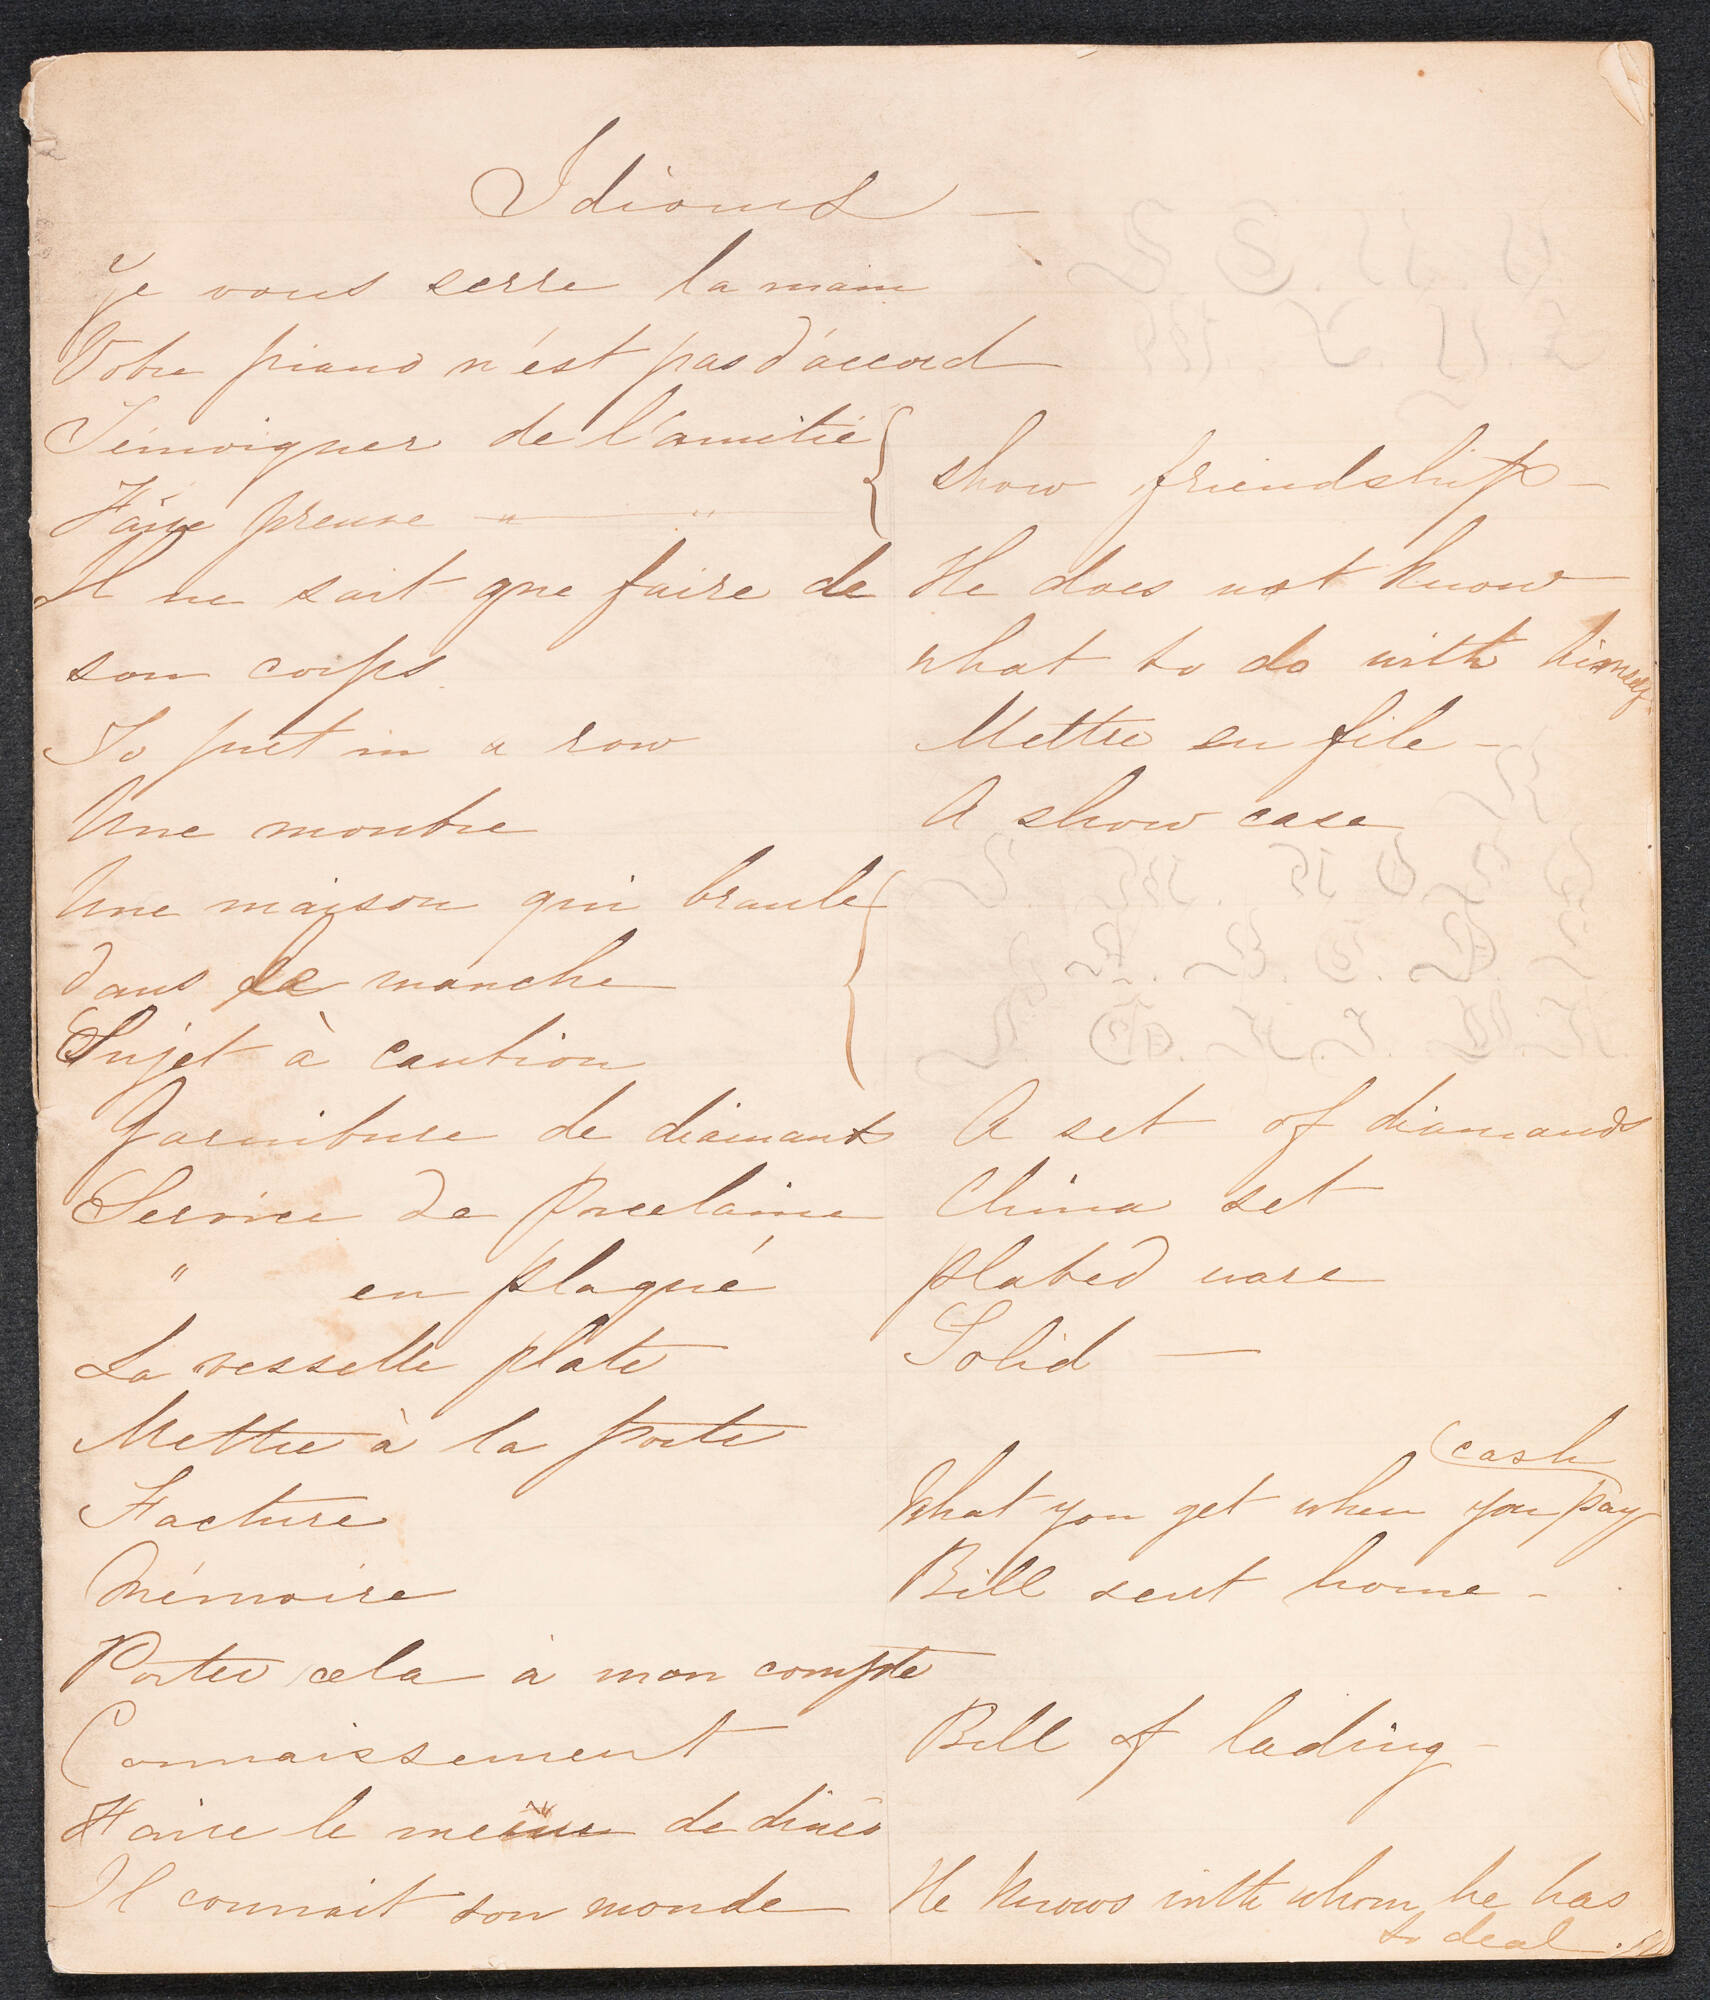 Idioms —
Je vous serre la main
Votre piano n'est pas d'accord
Témoigner de l'amitié
Faire preuve " — "
show friendship —
Il ne sait que faire de He does not know
son corps what to do with himself.
To put in a row Mettre en file —
Une montre A show case
Une maison qui branle
dans le manche
Sujet à caution
Garniture de diamants A set of diamonds
Service de Porcelaine China set
" en plaqué plated ware
La vesselle plate Solid —
Mettre à la porte
cash
Facture What you get when you pay
Mémoire Bill sent home —
Porter cela à mon compte
Connaissement Bill of lading —
Faire le menu de diner
Il connait son monde He knows with whom he has
to deal.